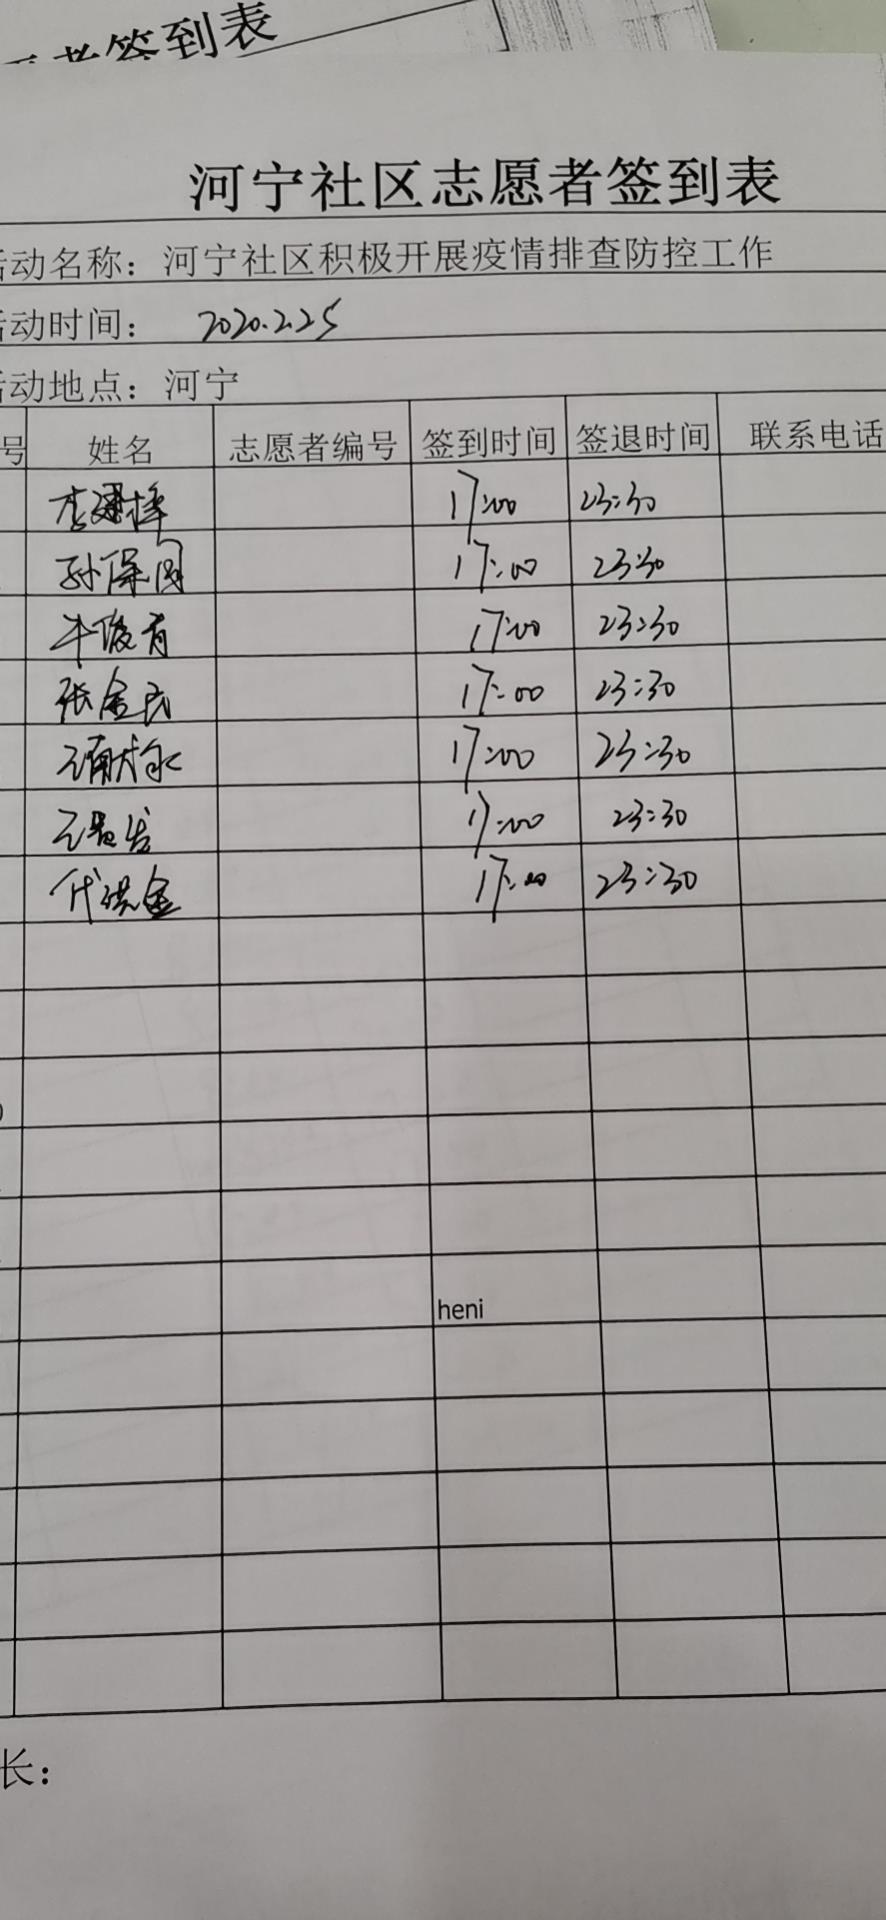 者签到表
河宁社区志愿者签到表
活动名称：河宁社区积极开展疫情排查防控工作
活动时间： 2020.2.25
活动地点：河宁
号 姓名 志愿者编号 签到时间 签退时间 联系电话
17:00 23:30
孙保国 17:00 23:30
17:00 23:30
张金民 17:00 23:30
17:00 23:30
17:00 23:30
代洪金 17:00 23:30
heni
长：